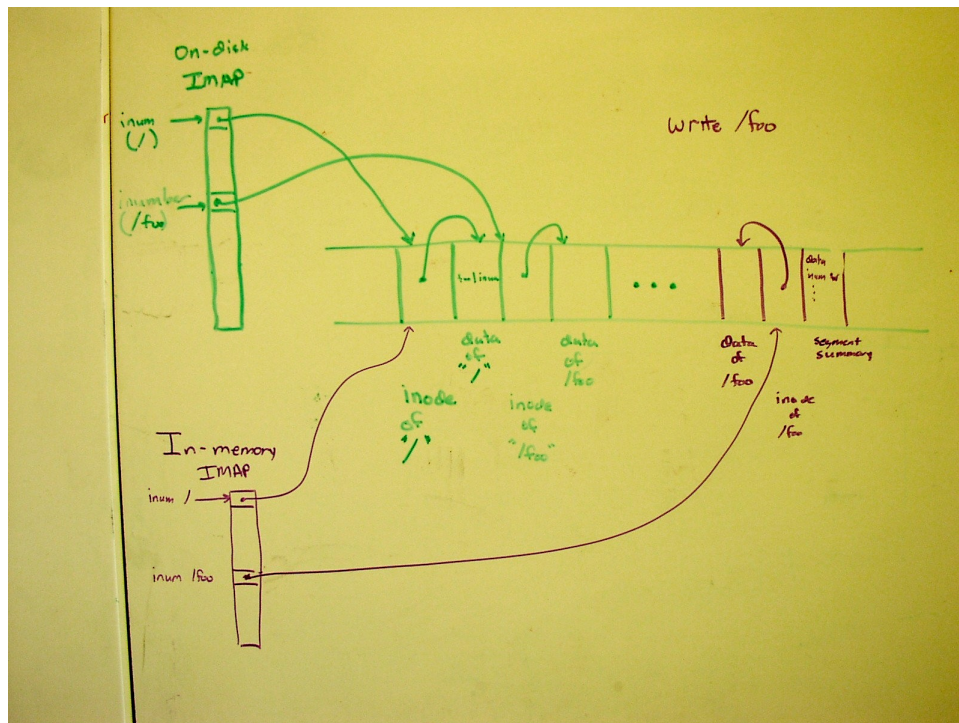 On-disk
IMAP
inum
(/)
inumber
(/foo)
Write /foo
foo/inum
data
inum #
data
of
"/"
data
of
/foo
data
of
/foo
segment
summary
inode
of
"/"
inode
of
"/foo"
inode
of
/foo
In-memory
IMAP
inum /
inum /foo